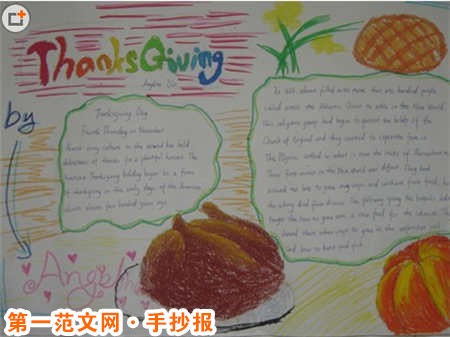 ThanksGiving
by
Thanksgiving Day
Fourth Thursday in November
every culture in the world has held
celebrations of thanks for a plentiful harvest. The
American Thanksgiving holiday began as a feast
of thanksgiving in the early days of the American
almost four hundred years ago.
In 1620, a boat filled with more than one hundred people
sailed across the Atlantic Ocean to settle in the New World.
This religious group had begun to question the beliefs of the
Church of England and they wanted to separate from it.
The Pilgrims settled in what is now the state of Massachusetts.
Their first winter in the New World was difficult. They had
arrived too late to grow many crops, and without fresh food, half
the colony died from disease. The following spring the Iroquois Indians
taught them how to grow corn, a new food for the colonists. They
showed them other crops to grow in the unfamiliar soil
and how to hunt and fish.
第一范文网·手抄报